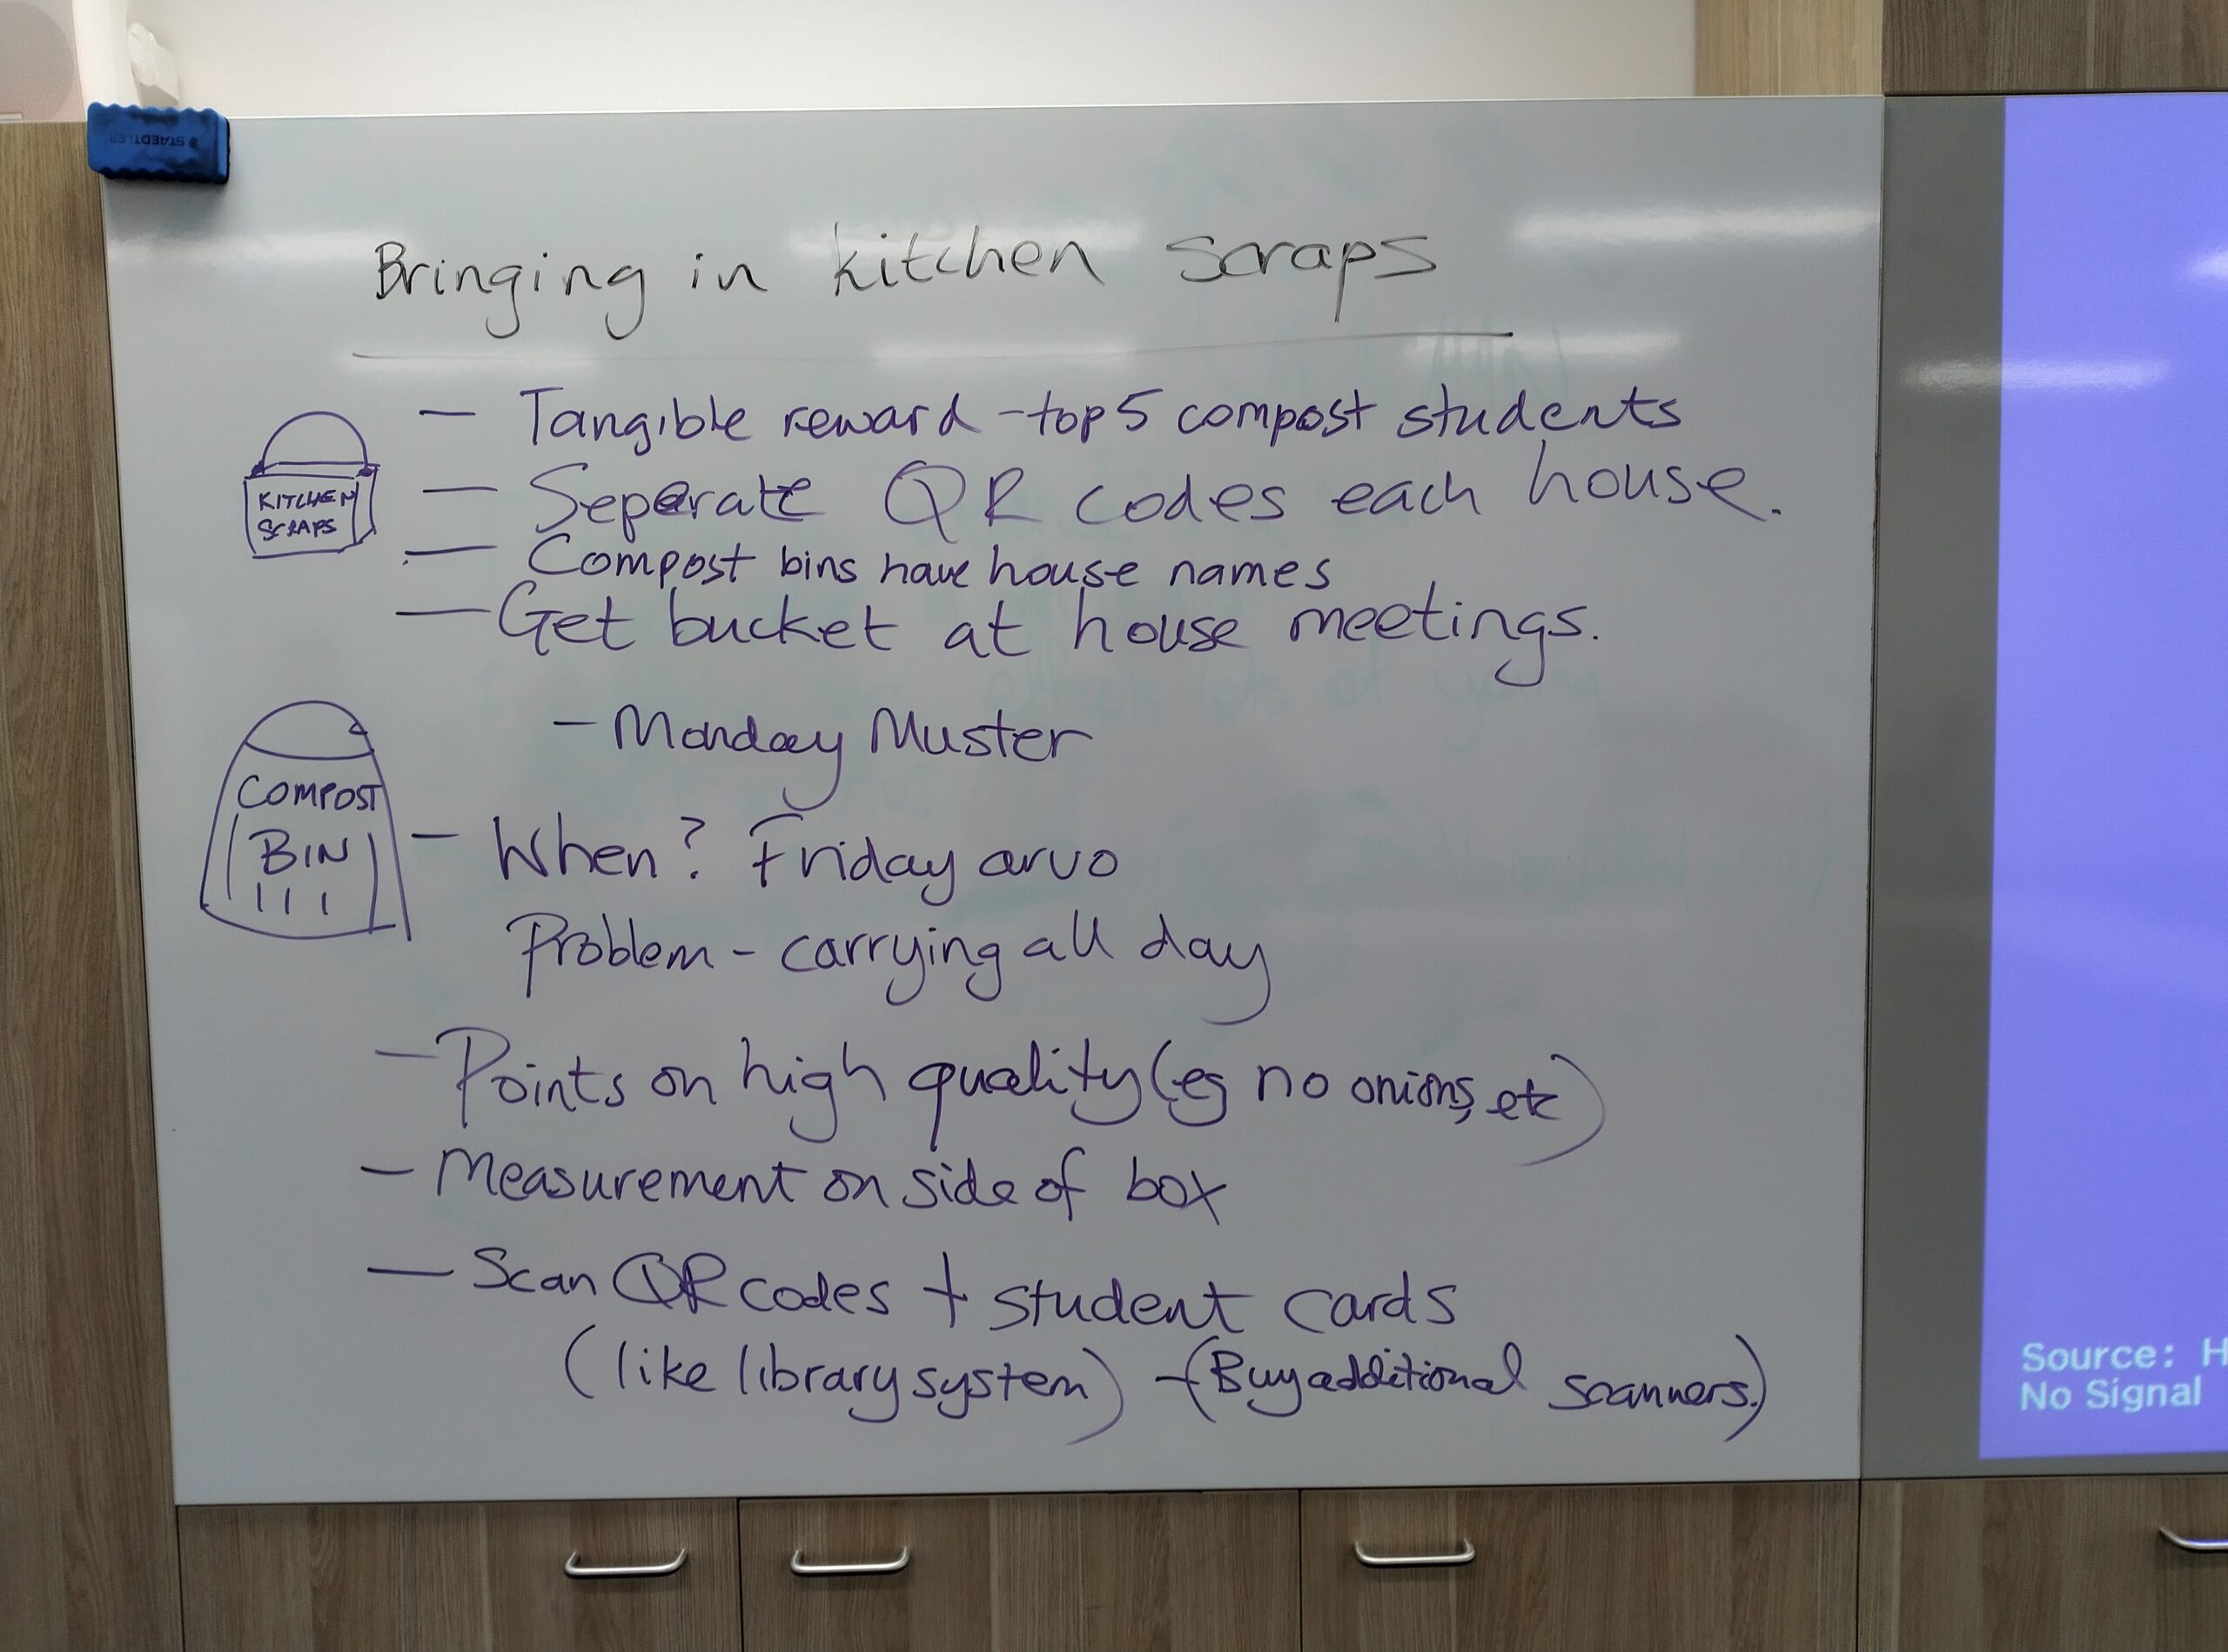 STAEDTLER
Bringing in kitchen scraps
— Tangible reward - top 5 compost students
KITCHEN
SCRAPS
— Separate QR codes each house.
— Compost bins have house names
— Get bucket at house meetings.
- Monday Muster
COMPOST
BIN
- When? Friday arvo
Problem - carrying all day
- Points on high quality (eg no onions, etc)
- Measurement on side of box
— Scan QR codes + student cards
(like library system) - (Buy additional scanners.)
Source: H
No Signal